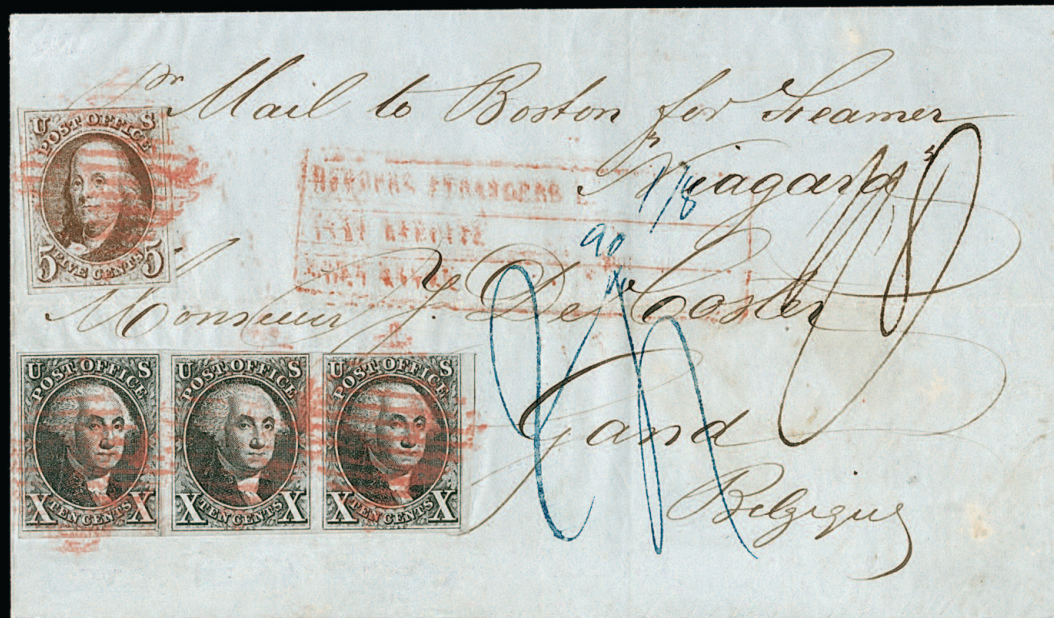 pr Mail to Boston for Steamer
Niagara
U S
POST OFFICE
5 FIVE CENTS 5
1/8
90
Monsieur J. De Coster
Gand
Belgique
U S
POST OFFICE
X TEN CENTS X
U S
POST OFFICE
X TEN CENTS X
U S
POST OFFICE
X TEN CENTS X